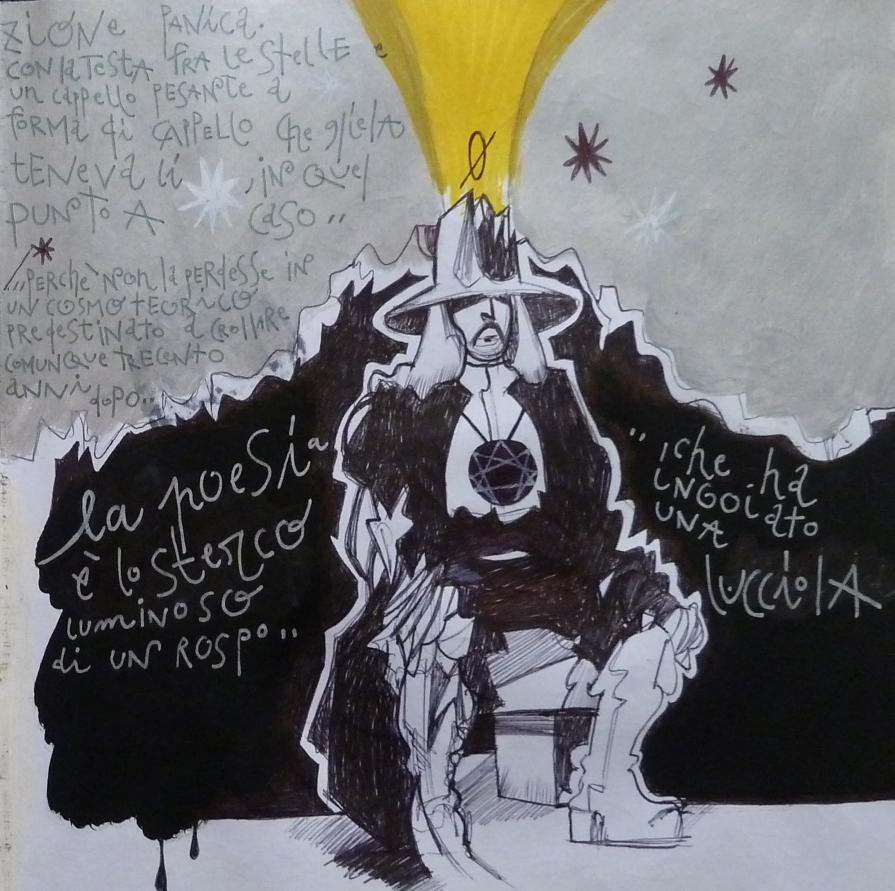 ZIONE PANICA.
CON LA TESTA FRA LE STELLE e
un cappello PESANTE a
FORMA di CAPPELLO CHE gliela
TENEVA lì, in quel
PUNTO A CASO..
Ø
,,PERCHÈ NON la PERDESSE IN
UN COSMO TEORICO
PREDESTINATO a CROLLARE
COMUNQUE TRECENTO
ANNI dopo..
la poesia
è lo STERCO
LUMINOSO
di UN ROSPO..
..che ha
INGOiato
UNA
lucciolA